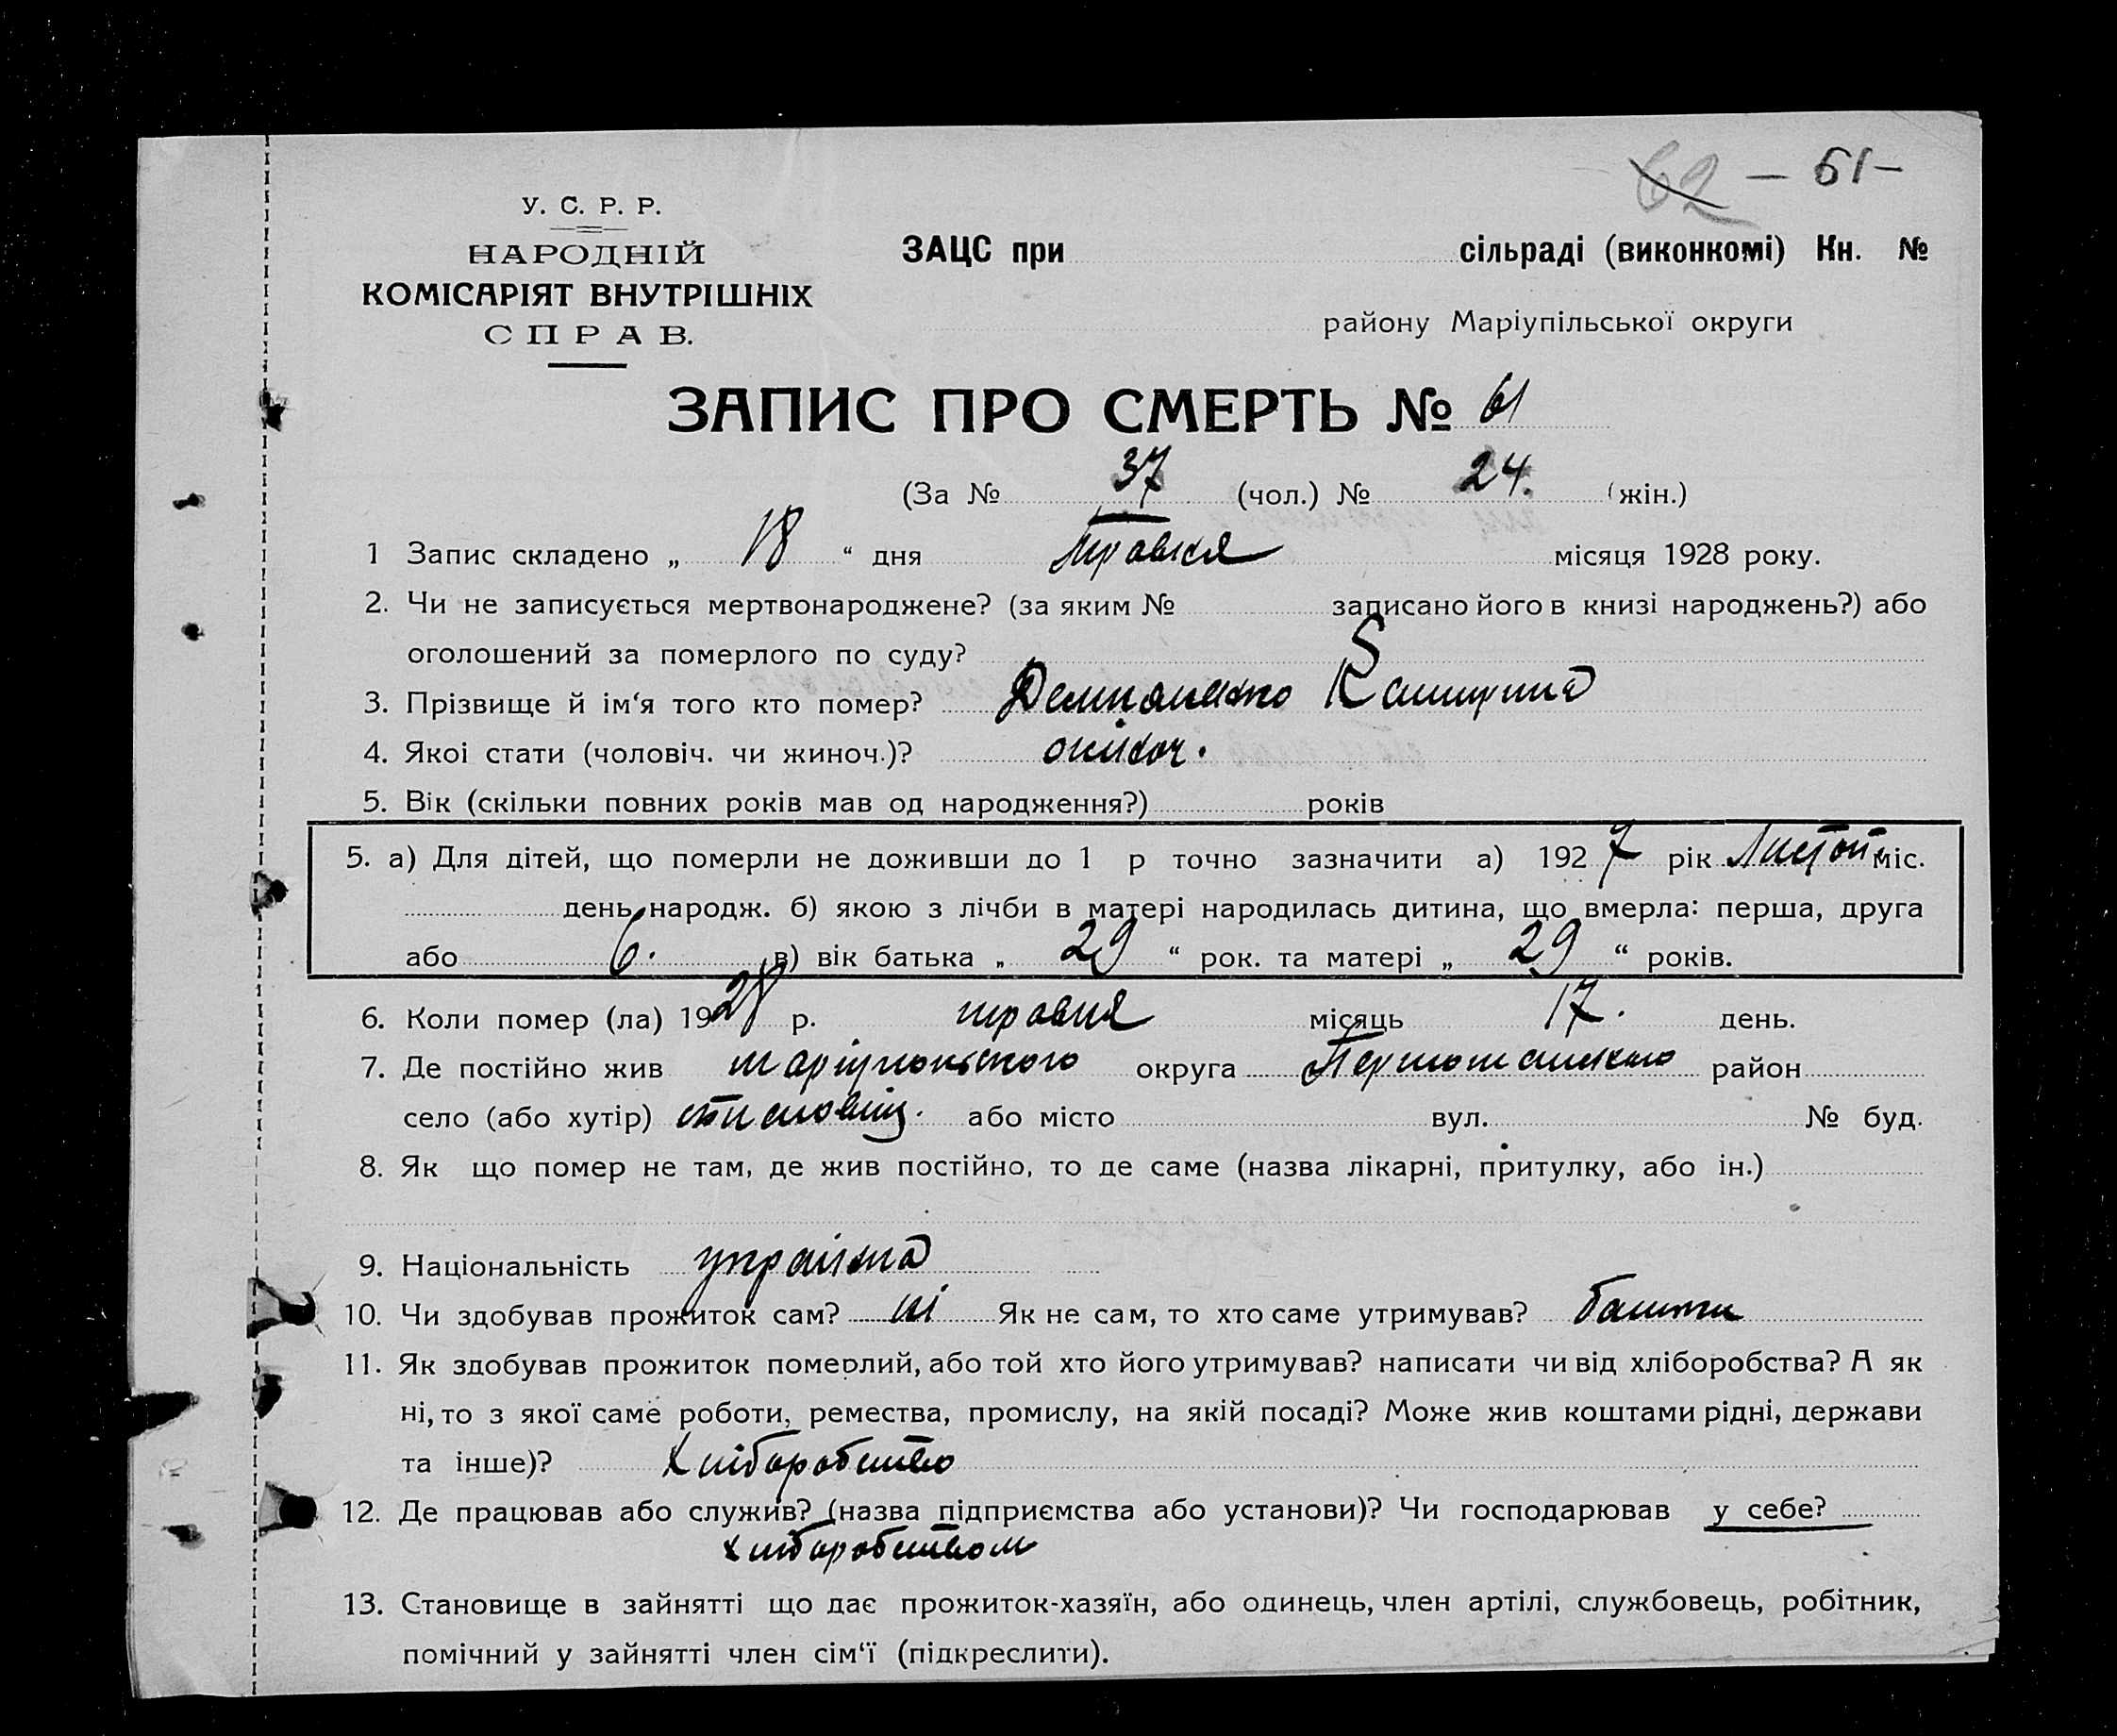 62 — 61 —
У. С. Р. Р.
НАРОДНІЙ
КОМІСАРІЯТ ВНУТРІШНІХ
СПРАВ.
ЗАЦС при сільраді (виконкомі) Кн. №
району Маріупільської округи
ЗАПИС ПРО СМЕРТЬ № 61
(За № 37 (чол.) № 24. (жін.)
1 Запис складено „ 18 “ дня травня місяця 1928 року.
2. Чи не записується мертвонароджене? (за яким № записано його в книзі народжень?) або
оголошений за померлого по суду?
3. Прізвище й ім‘я того кто помер? Катерина
4. Якоі стати (чоловіч. чи жиноч.)?
5. Вік (скільки повних років мав од народження?) років
5. а) Для дітей, що померли не доживши до 1 р точно зазначити а) 1927 рік Листоп. міс.
день народж. б) якою з лічби в матері народилась дитина, що вмерла: перша, друга
або 6. в) вік батька „ 29 “ рок. та матері „ 29 “ років.
6. Коли помер (ла) 1928 р. травня місяць 17. день.
7. Де постійно жив маріупольского округа район
село (або хутір) або місто вул. № буд.
8. Як що помер не там, де жив постійно, то де саме (назва лікарні, притулку, або ін.)
9. Національність українка
10. Чи здобував прожиток сам? ні Як не сам, то хто саме утримував? батьки
11. Як здобував прожиток померлий, або той хто його утримував? написати чи від хліборобства? А як
ні, то з якої саме роботи, ремества, промислу, на якій посаді? Може жив коштами рідні, держави
та інше)? Хліборобство
12. Де працював або служив? (назва підприємства або установи)? Чи господарював у себе?
хліборобством
13. Становище в зайнятті що дає прожиток-хазяїн, або одинець, член артілі, службовець, робітник,
помічний у зайнятті член сім‘ї (підкреслити).